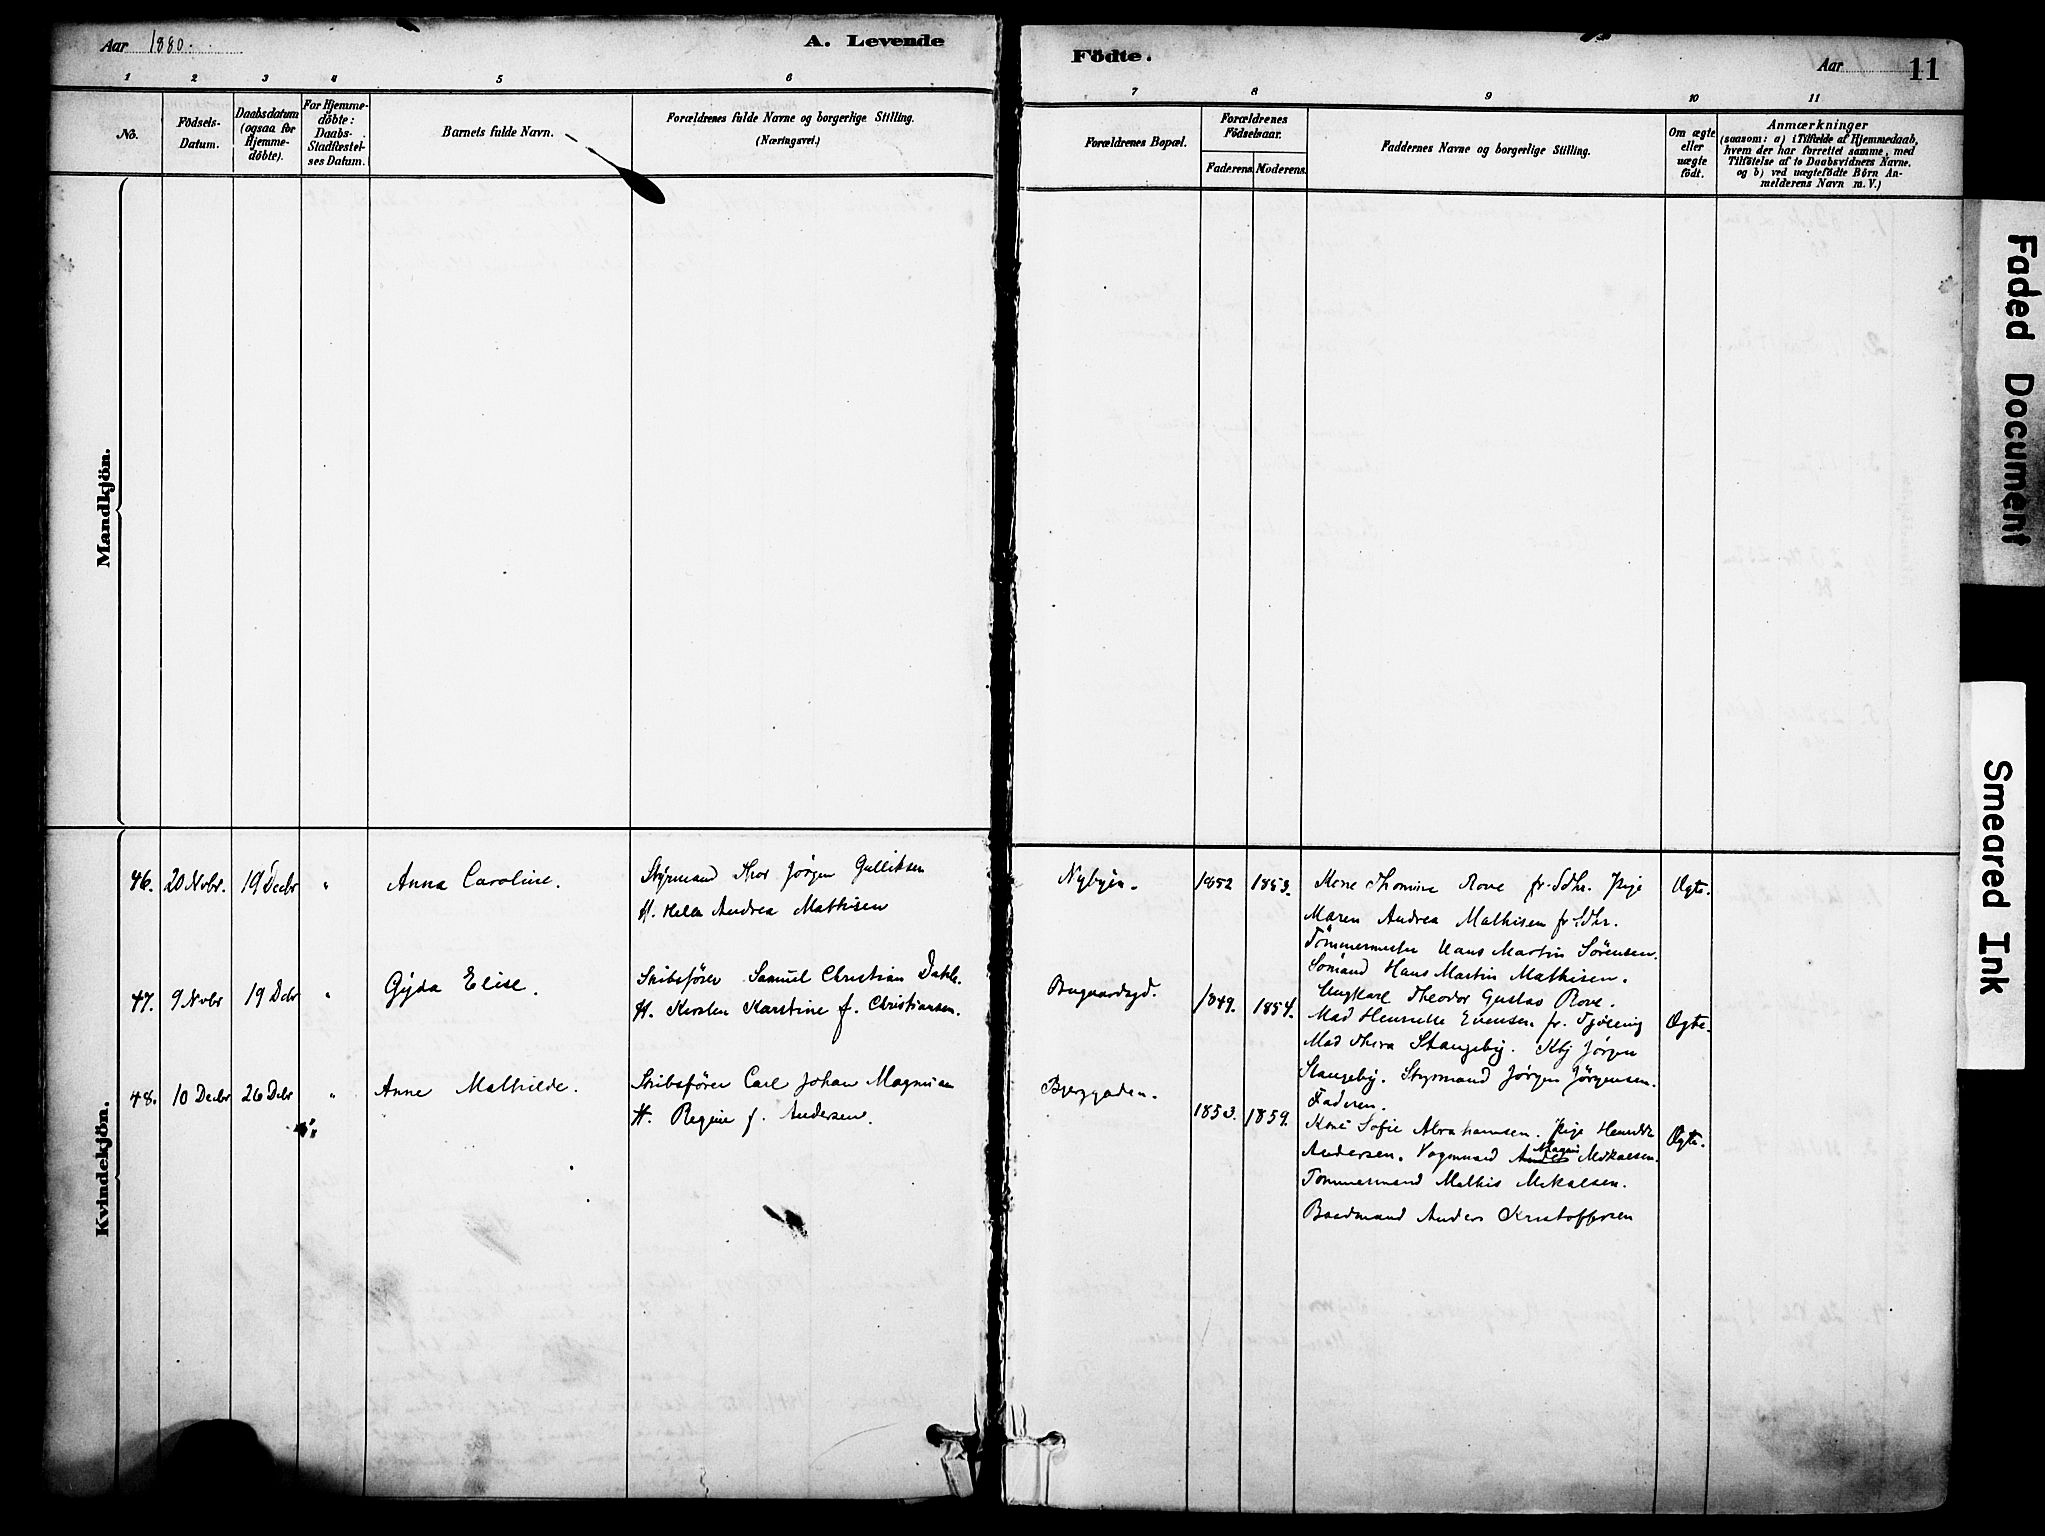 Aar 1880.
A. Levende
Födte.
Aar
11
1 2 3 4 5 6 7 8 9 10 11
No.
Födsels-
Datum.
Daabsdatum
(ogsaa for
Hjemme-
døbte).
For Hjemme-
døbte:
Daabs-
Stadfæstel-
ses Datum.
Barnets fulde Navn.
Forældrenes fulde Navne og borgerlige Stilling.
(Næringsvei.)
Forældrenes Bopæl.
Forældrenes
Födselsaar.
Faderens. Moderens.
Faddernes Navne og borgerlige Stilling.
Om ægte
eller
uægte
födt.
Anmærkninger
(saasom: a) i Tilfælde af Hjemmedaab,
hvem der har forrettet samme, med
Tilföielse af to Daabsvidners Navne.
og b) ved uægtefödte Börn An-
melderens Navn m. V.)
Mandkjön.
Kvindekjön.
46. 20 Novbr. 19 Decbr " Anna Caroline.
Styrmand Thor Jörgen Gulliksen
H. Helle Andrea Mathisen
Nybyen. 1852 1853.
Kone Thomine Rove fr. Sdhr. Pige
Maren Andrea Mathisen fr. Sdhr.
Tömmermester Hans Martin Sörensen.
Sömand Hans Martin Mathisen.
Ungkarl Theodor Gustav Rove.
Ægte.
47. 9 Novbr 19 Dcbr " Gyda Elise.
Skibsförer Samuel Christian Dahl.
H. Kirsten Karstine f. Christiansen.
1849. 1854.
Mad Henriette Evensen fr. Tjölling
Mad Thora Stangeby. Kbj Jörgen
Stangeby. Styrmand Jörgen Jörgensen.
Faderen.
Ægte.
48. 10 Decbr 26 Dcbr " Anne Mathilde.
Skibsförer Carl Johan Magnus
H. Regine f. Andersen.
Bjerggaden. 1853. 1859.
Kone Sofie Abrahamsen. Pige Henrikke
Andersen. Vognmand Magnus Mikalsen.
Tömmermand Mathis Mikalsen.
Baadmand Anders Kristoffersen
Ægte.
Faded Document
Smeared Ink